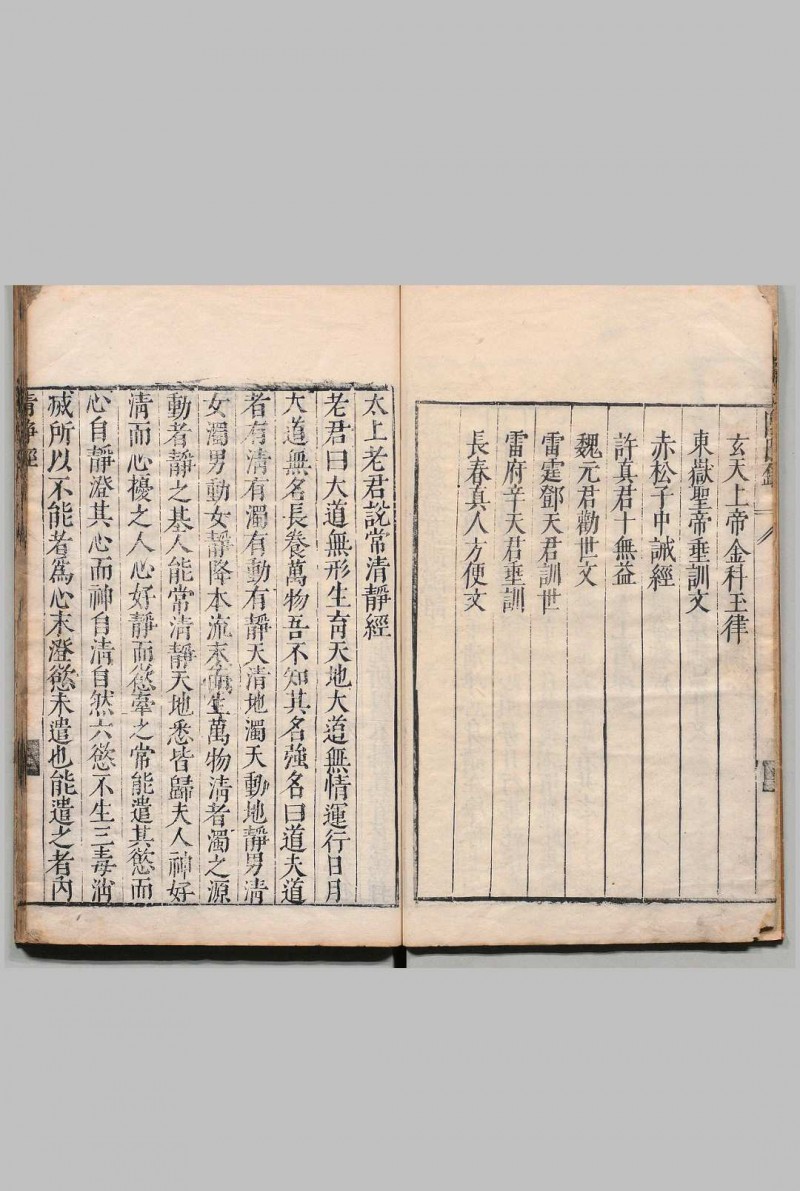 玄天上帝金科玉律
東嶽聖帝垂訓文
赤松子中誡經
許真君十無益
魏元君勸世文
雷霆鄧天君訓世
雷府辛天君垂訓
長春真人方便文
太上老君說常清靜經
老君曰大道無形生育天地大道無情運行日月
大道無名長養萬物吾不知其名強名曰道夫道
者有清有濁有動有靜天清地濁天動地靜男清
女濁男動女靜降本流末而生萬物清者濁之源
動者靜之基人能常清靜天地悉皆歸夫人神好
清而心擾之人心好靜而慾牽之常能遣其慾而
心自靜澄其心而神自清自然六慾不生三毒消
滅所以不能者為心未澄慾未遣也能遣之者內
清靜經